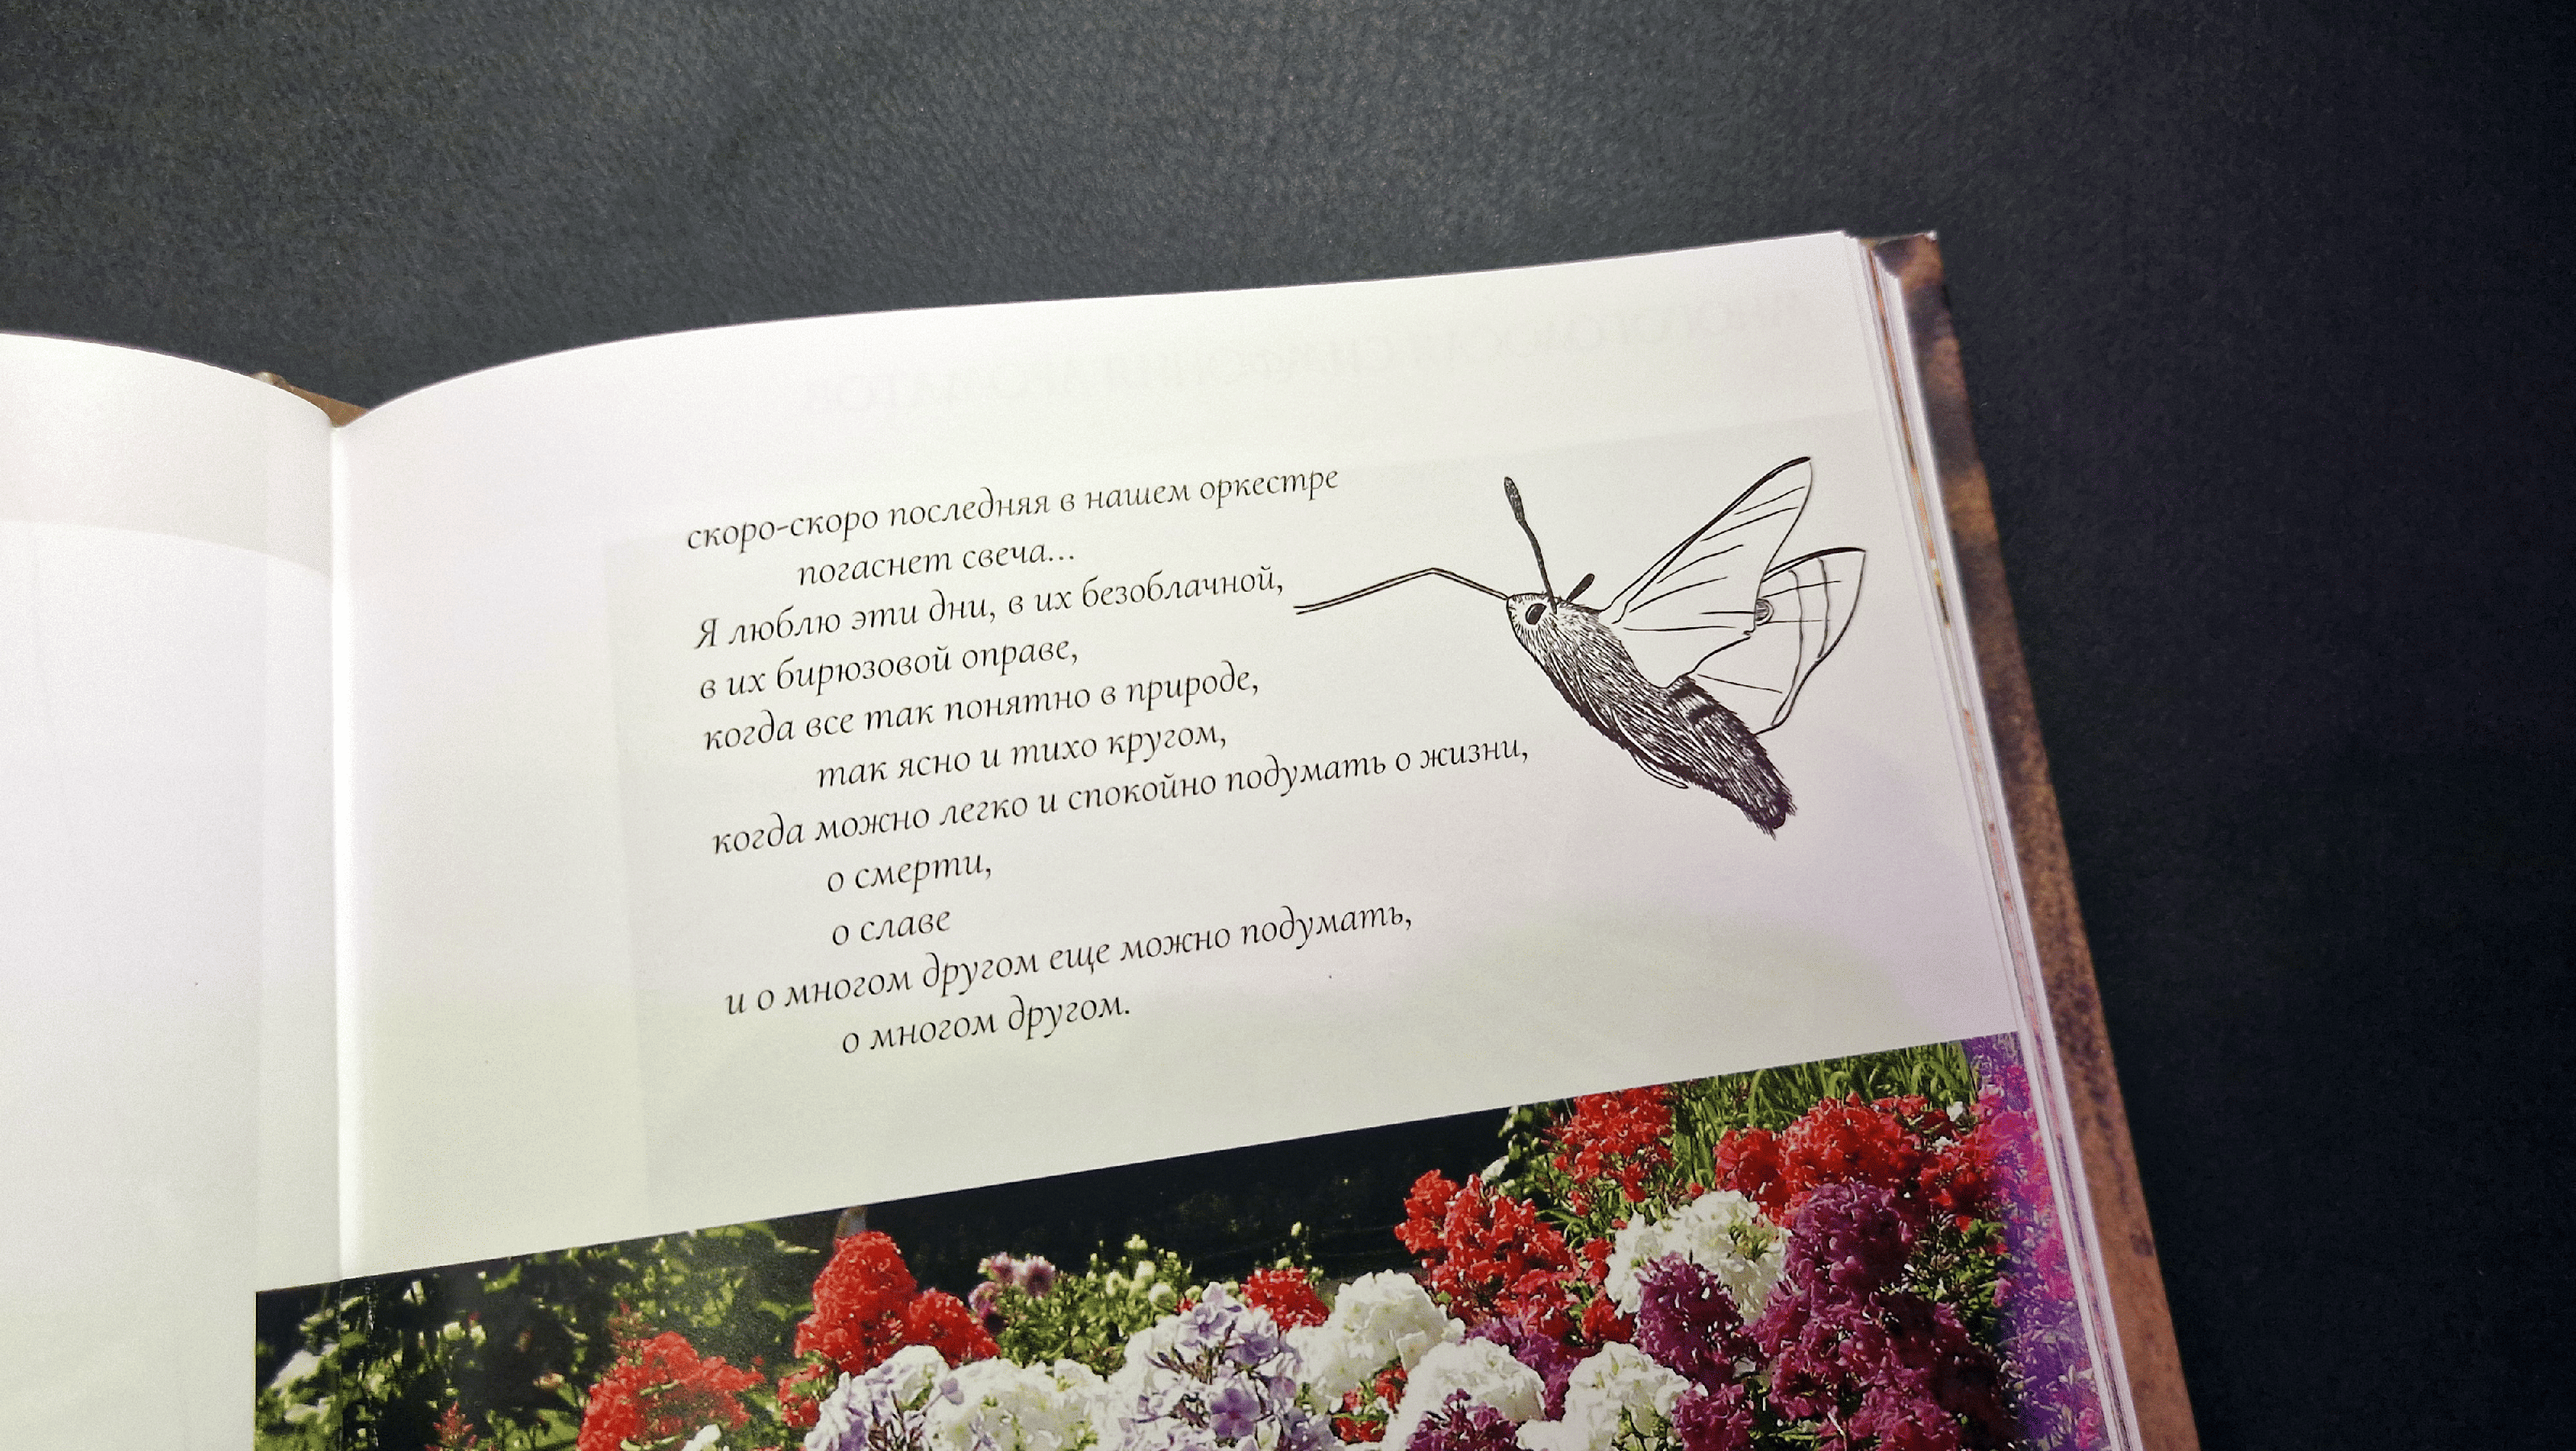 скоро-скоро последняя в нашем оркестре
погаснет свеча...
Я люблю эти дни, в их безоблачной,
в их бирюзовой оправе,
когда все так понятно в природе,
так ясно и тихо кругом,
когда можно легко и спокойно подумать о жизни,
о смерти,
о славе
и о многом другом еще можно подумать,
о многом другом.